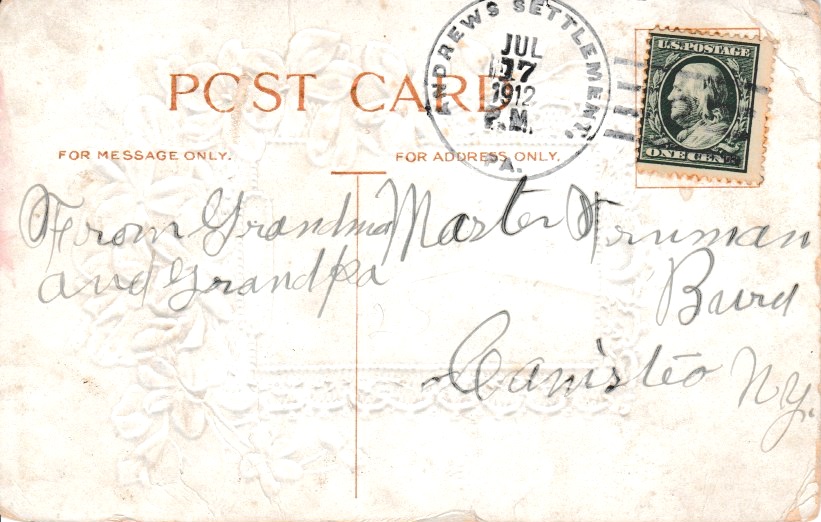 POST CARD
ANDREWS SETTLEMENT, PA.
JUL
17
1912
P.M.
U.S. POSTAGE
ONE CENT
FOR MESSAGE ONLY.
FOR ADDRESS ONLY.
From Grandma
and Grandpa
Master Truman
Burd
Canisteo NY.